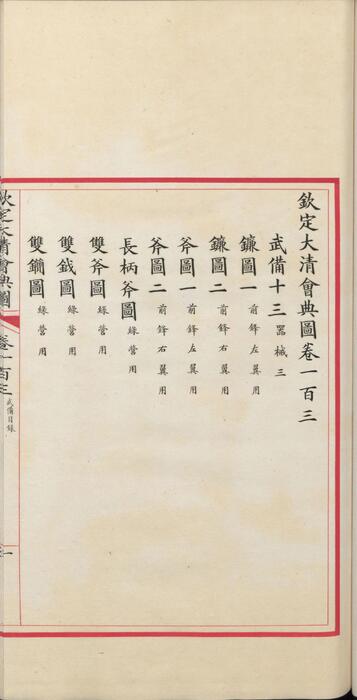 欽定大清會典圖卷一百三
武備十三 器械三
鐮圖一 前鋒左翼用
鐮圖二 前鋒右翼用
斧圖一 前鋒左翼用
斧圖二 前鋒右翼用
長柄斧圖 綠營用
雙斧圖 綠營用
雙鉞圖 綠營用
雙鐧圖 綠營用
欽定大清會典圖 卷一百三 武備目錄 一